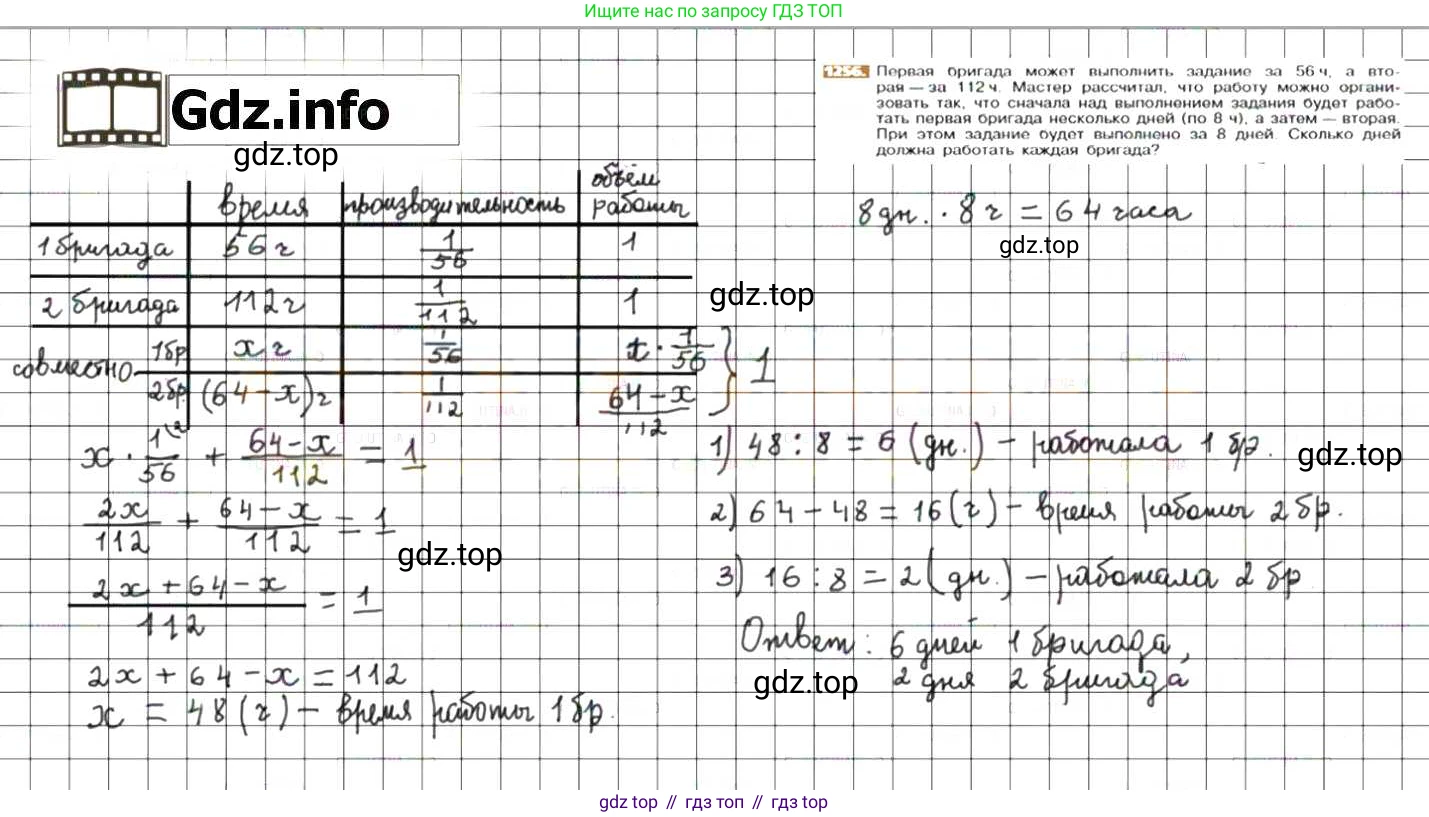 Ищите нас по запросу ГДЗ ТОП
Gdz.info
gdz.top
1256. Первая бригада может выполнить задание за 56 ч, а вто-
рая — за 112 ч. Мастер рассчитал, что работу можно органи-
зовать так, что сначала над выполнением задания будет рабо-
тать первая бригада несколько дней (по 8 ч), а затем — вторая.
При этом задание будет выполнено за 8 дней. Сколько дней
должна работать каждая бригада?
8 дн. · 8 ч = 64 часа
gdz.top
время производительность объём работы
1 бригада 56 ч 1/56 1
2 бригада 112 ч 1/112 1
gdz.top
совместно 1 бр x ч 1/56 x · 1/56 } 1
2 бр. (64 - x) ч 1/112 (64 - x)/112
x · 1\2/56 + (64 - x)/112 = 1
2x/112 + (64 - x)/112 = 1
gdz.top
(2x + 64 - x)/112 = 1
2x + 64 - x = 112
x = 48 (ч) - время работы 1 бр.
1) 48 : 8 = 6 (дн.) - работала 1 бр.
gdz.top
2) 64 - 48 = 16 (ч) - время работы 2 бр.
3) 16 : 8 = 2 (дн.) - работала 2 бр
Ответ: 6 дней 1 бригада,
2 дня 2 бригада
gdz.top
gdz top // гдз топ // gdz top